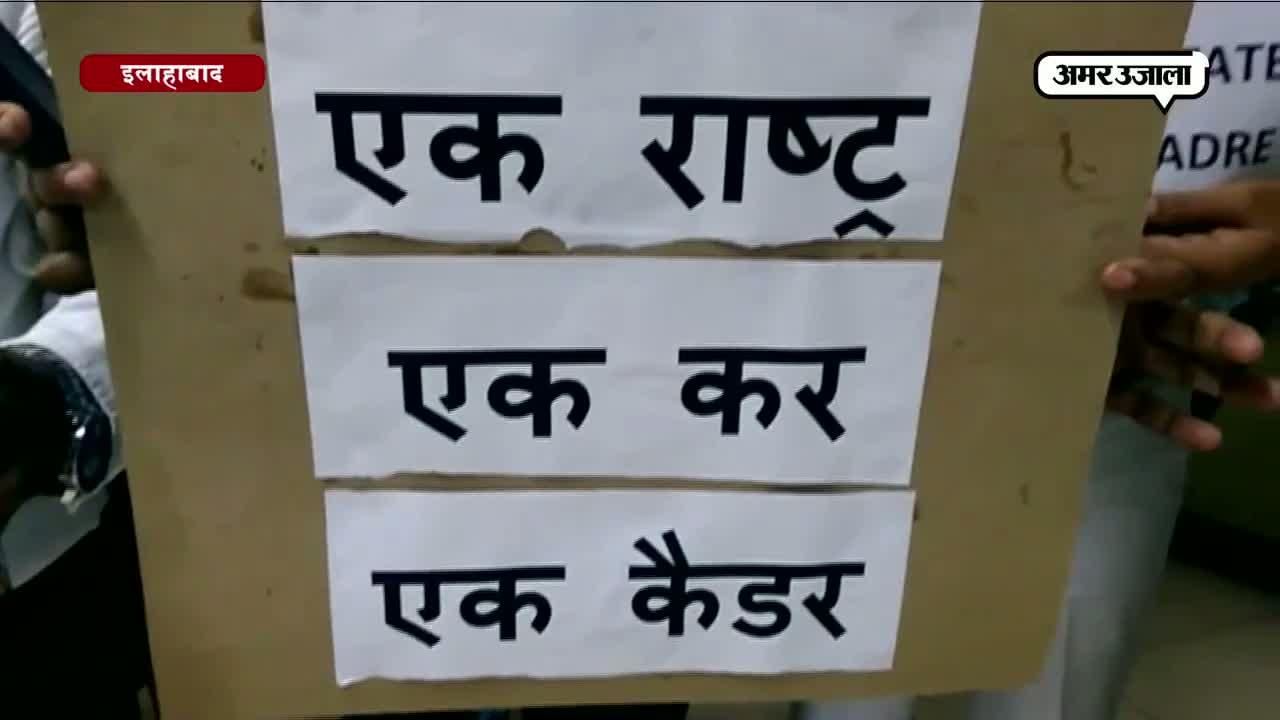 इलाहाबाद
अमर उजाला
एक राष्ट्र
एक कर
एक कैडर